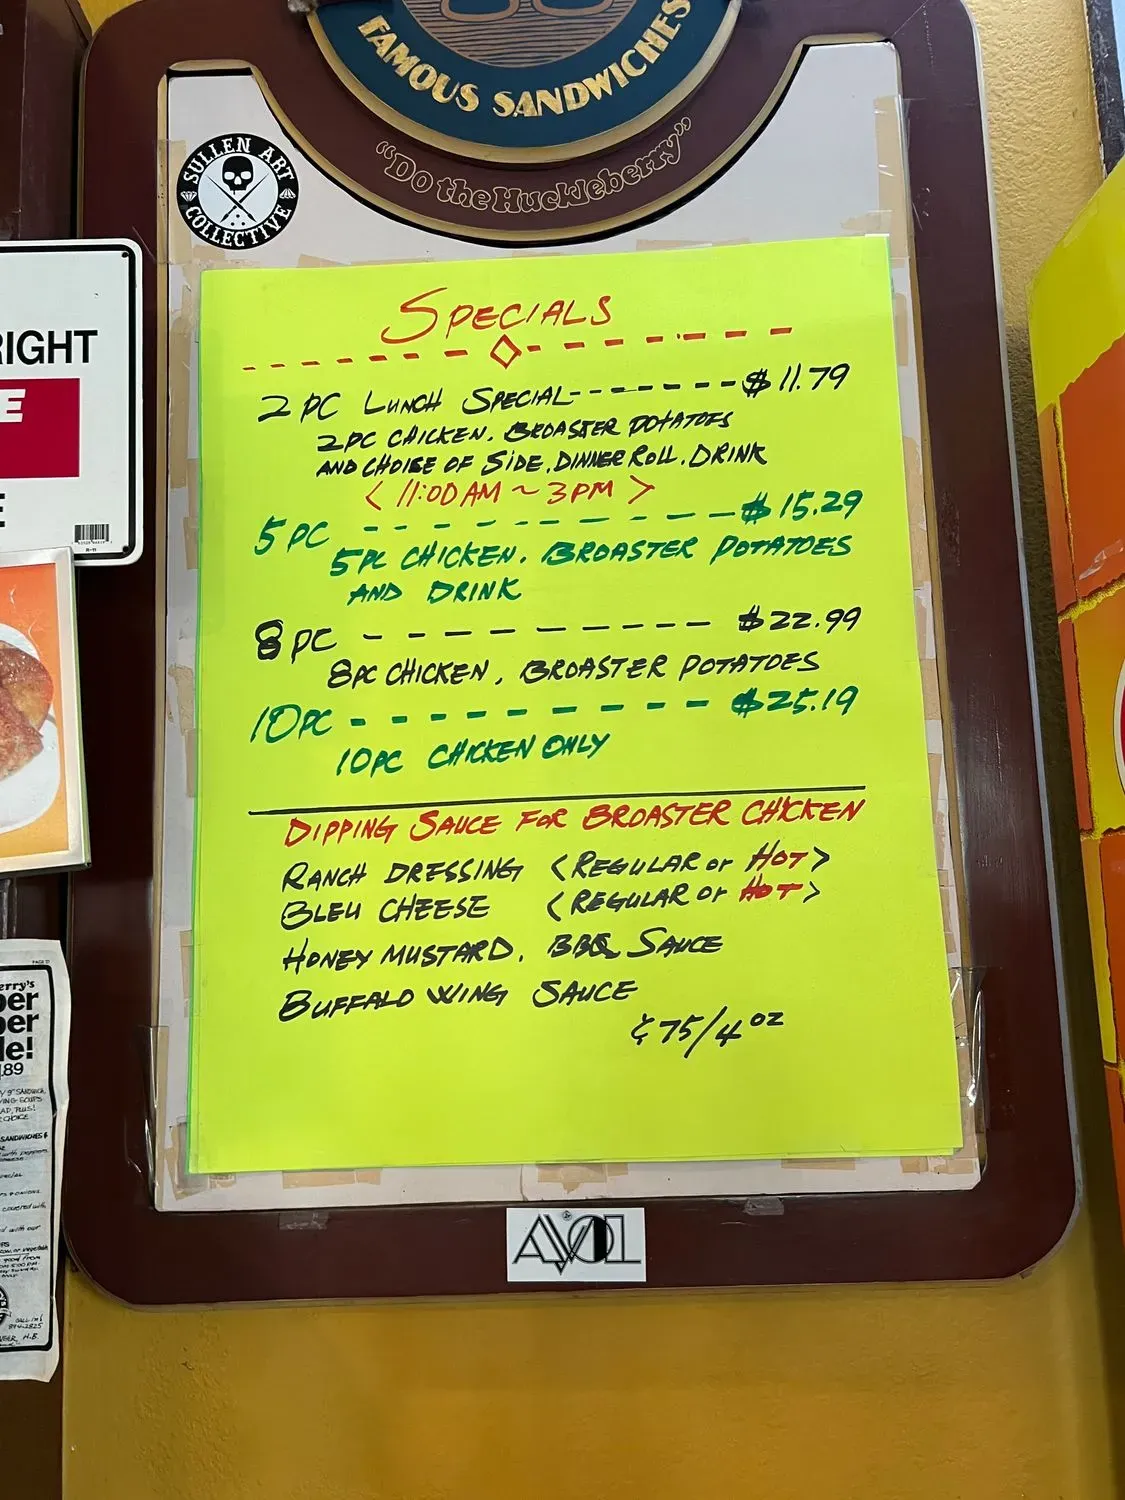 FAMOUS SANDWICHES
"Do the Huckleberry"
SULLEN ART
COLLECTIVE
RIGHT
E
E
R-11
SPECIALS
2 PC LUNCH SPECIAL------$11.79
2PC CHICKEN. BROASTER POTATOES
AND CHOISE OF SIDE. DINNER ROLL. DRINK
< 11:00 AM ~ 3PM >
5 PC - - - - - - - - - $15.29
5PC CHICKEN. BROASTER POTATOES
AND DRINK
8 PC - - - - - - - - - $22.99
8PC CHICKEN, BROASTER POTATOES
10PC - - - - - - - - - $25.19
10PC CHICKEN ONLY
DIPPING SAUCE FOR BROASTER CHICKEN
RANCH DRESSING <REGULAR or HOT>
BLEU CHEESE <REGULAR or HOT>
HONEY MUSTARD. BBQ SAUCE
BUFFALO WING SAUCE
¢75/4oz
AVOL
PAGE D
erry's
per
per
le!
.89
9" SANDWICH
CHOICE
SANDWICHES &
with peppers
covered with
d with our
CALL IN!
894-2825
H.B.